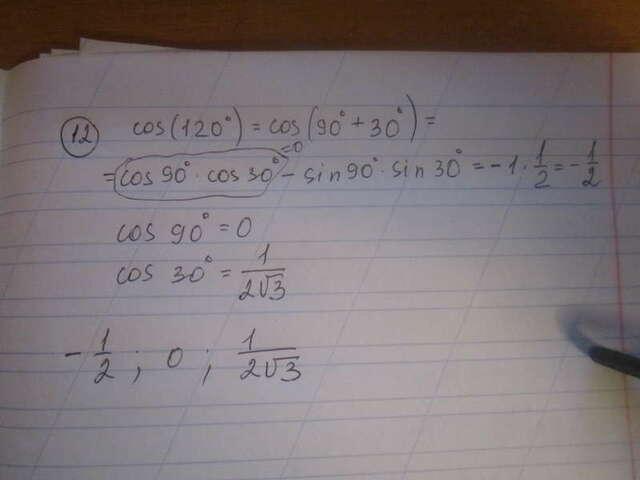 12 cos(120°) = cos(90° + 30°) =
= cos 90° · cos 30° =0 - sin 90° · sin 30° = -1 · 1/2 = -1/2
cos 90° = 0
cos 30° = 1/2√3
-1/2 ; 0 ; 1/2√3